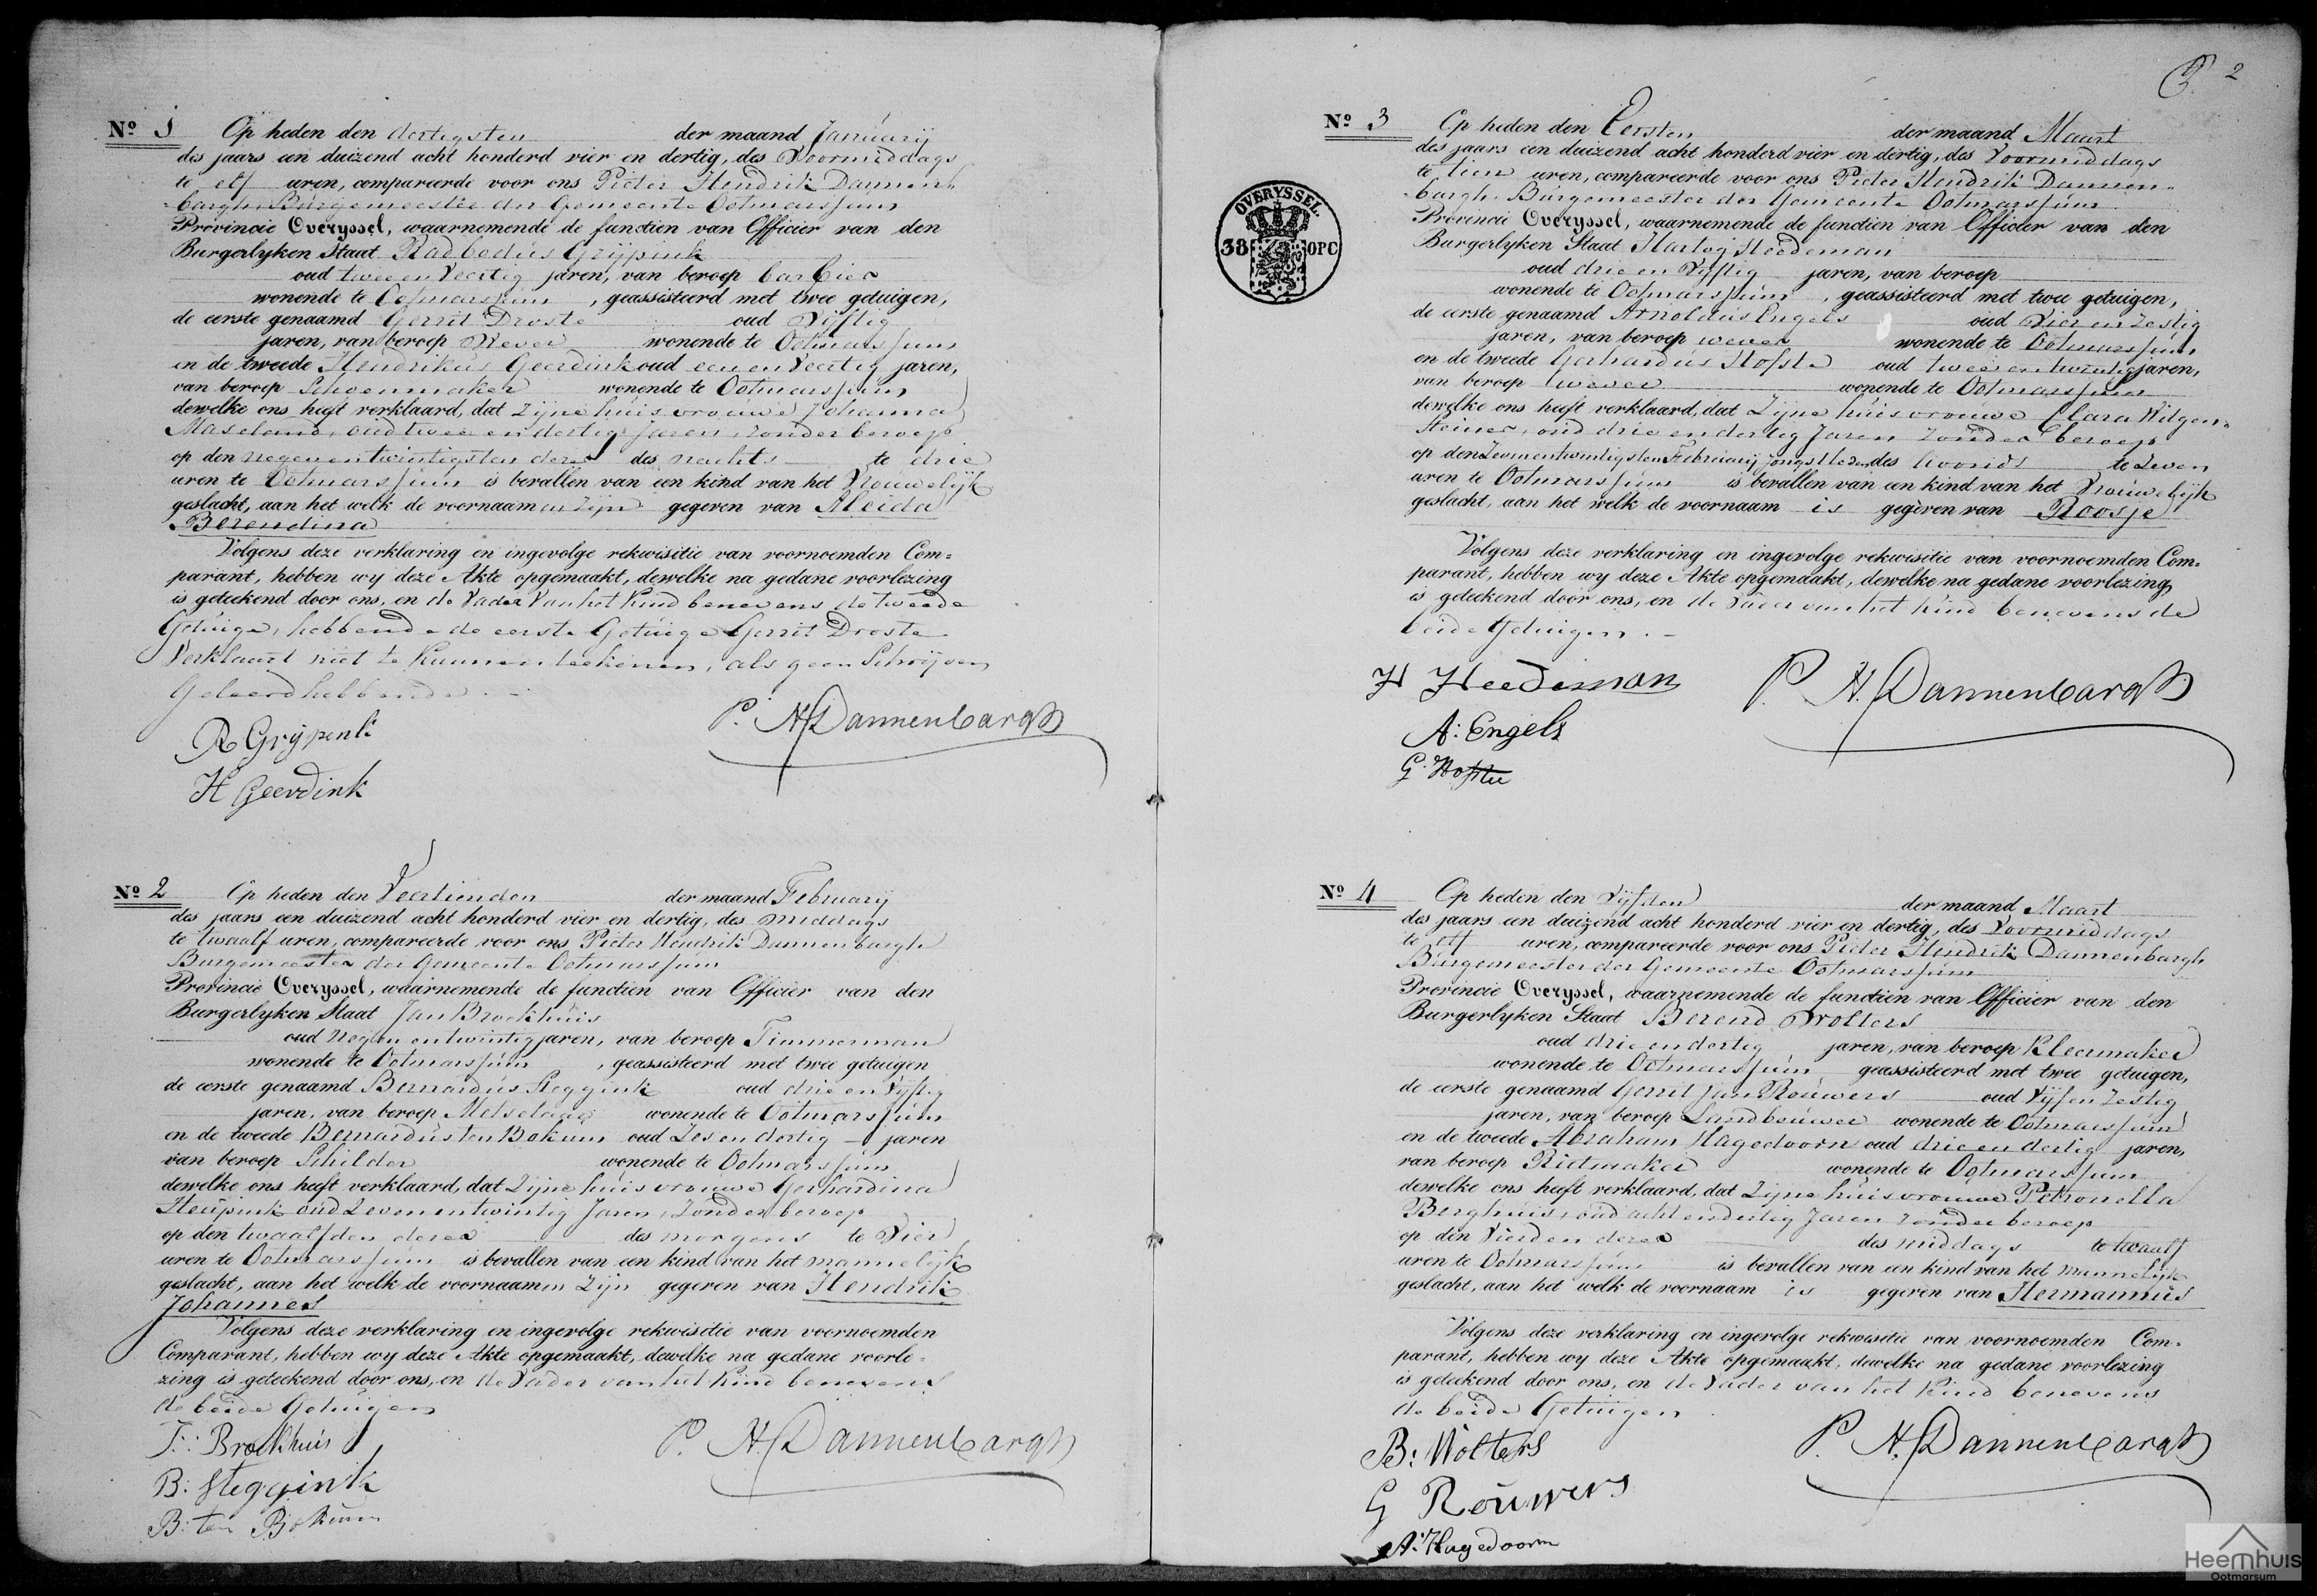 Nº 1 Op heden den dertigsten der maand Januarij
des jaars een duizend acht honderd vier en dertig, des Voormiddags
te elf uren, compareerde voor ons Pieter Hendrik Dannen-
bargh Burgemeester der Gemeente Ootmarssum
Provincie Overyssel, waarnemende de functien van Officier van den
Burgerlyken Staat Radbodus Grijpink
oud twee en Veertig jaren, van beroep barbier
wonende te Ootmarssum, geassisteerd met twee getuigen,
de eerste genaamd Gerrit Droste oud Vijftig
jaren, van beroep Wever wonende te Ootmarssum
en de tweede Hendrikus Geerdink oud een en Veertig jaren,
van beroep Schoenmaker wonende te Ootmarssum
dewelke ons heeft verklaard, dat zijne huisvrouwe Johanna
Maseland, oud twee en dertig Jaren, zonder beroep
op den negenentwintigsten dezer des nachts te drie
uren te Ootmarssum is bevallen van een kind van het Vrouwelijk
geslacht, aan het welk de voornaamen zijn gegeven van Aleida
Berendina
Volgens deze verklaring en ingevolge rekwisitie van voornoemden Com=
parant, hebben wy deze Akte opgemaakt, dewelke na gedane voorlezing
is geteekend door ons, en de Vader van het Kind benevens de tweede
Getuige, hebbende de eerste Getuige Gerrit Droste
Verklaart niet te Kunnen teekenen, als geen Schrijven
Geleerd hebbende.
P. H. Dannenbargh
R Grijpenk
H Geerdink
Nº 2 Op heden den Veertienden der maand February
des jaars een duizend acht honderd vier en dertig, des middags
te twaalf uren, compareerde voor ons Pieter Hendrik Dannenbargh
Burgemeester der Gemeente Ootmarssum
Provincie Overyssel, waarnemende de functien van Officier van den
Burgerlyken Staat Jan Brockhuis
oud negen en twintig jaren, van beroep Timmerman
wonende te Ootmarssum, geassisteerd met twee getuigen
de eerste genaamd Bernardus Steggink oud drie en Vijftig
jaren, van beroep Metselaar wonende te Ootmarssum
en de tweede Bernardus ten Bokum oud Zes en dertig jaren
van beroep Schilder wonende te Ootmarssum
dewelke ons heeft verklaard, dat Zijne huisvrouwe Gerhardina
Heupink oud Zeven en twintig Jaren, Zonder beroep
op den twaalfden dezer des morgens te Vier
uren te Ootmarssum is bevallen van een kind van het mannelijk
geslacht, aan het welk de voornaamen Zijn gegeven van Hendrik
Johannes
Volgens deze verklaring en ingevolge rekwisitie van voornoemden
Comparant, hebben wy deze Akte opgemaakt, dewelke na gedane voorle=
zing is geteekend door ons, en de Vader van het Kind benevens
de beide Getuigen
J: Brockhuis
P. H. Dannenbargh
B: Steggink
B: ten Bokum
2
Nº 3 Op heden den Eersten der maand Maart
des jaars een duizend acht honderd vier en dertig, des Voormiddags
te tien uren, compareerde voor ons Pieter Hendrik Dannen-
bargh Burgemeester der Gemeente Ootmarssum
Provincie Overyssel, waarnemende de functien van Officier van den
Burgerlyken Staat Hartog Heedeman
oud drie en Vijftig jaren, van beroep
wonende te Ootmarssum, geassisteerd met twee getuigen,
de eerste genaamd Arnoldus Engels oud Vier en Zestig
jaren, van beroep wever wonende te Ootmarssum
en de tweede Gerhardus Hofste oud twee en twintig jaren,
van beroep wever wonende te Ootmarssum
dewelke ons heeft verklaard, dat Zijne huisvrouwe Clara Wilgen=
Steiner, oud drie en dertig Jaren Zonder beroep
op den Zevenentwintigsten February jongstleden des Avonds te Zeven
uren te Ootmarssum is bevallen van een kind van het Vrouwelijk
geslacht, aan het welk de voornaam is gegeven van Roosje
Volgens deze verklaring en ingevolge rekwisitie van voornoemden Com=
parant, hebben wy deze Akte opgemaakt, dewelke na gedane voorlezing
is geteekend door ons, en de Vader van het Kind benevens de
beide Getuigen.
H Heedeman
P. H. Dannenbargh
A: Engels
G: Hofste
OVERYSSEL.
38 OPC
Nº 4 Op heden den Vijfden der maand Maart
des jaars een duizend acht honderd vier en dertig, des Voormiddags
te elf uren, compareerde voor ons Pieter Hendrik Dannenbargh
Burgemeester der Gemeente Ootmarssum
Provincie Overyssel, waarnemende de functien van Officier van den
Burgerlyken Staat Berend Wolters
oud drie en dertig jaren, van beroep Kleermaker
wonende te Ootmarssum geassisteerd met twee getuigen,
de eerste genaamd Gerrit Jan Rouwers oud Vijf en Zestig
jaren, van beroep Landbouwer wonende te Ootmarssum
en de tweede Abraham Hagedoorn oud drie en dertig jaren,
van beroep Rietmaker wonende te Ootmarssum
dewelke ons heeft verklaard, dat Zijne huisvrouwe Petronella
Berghuis, oud acht en dertig Jaren zonder beroep
op den Vierden dezer des middags te twaalf
uren te Ootmarssum is bevallen van een kind van het mannelijk
geslacht, aan het welk de voornaam is gegeven van Hermannus
Volgens deze verklaring en ingevolge rekwisitie van voornoemden Com=
parant, hebben wy deze Akte opgemaakt, dewelke na gedane voorlezing
is geteekend door ons, en de Vader van het Kind benevens
de beide Getuigen
B: Wolters
P. H. Dannenbargh
G Rouwers
A: Hagedoorn
Heemhuis
Ootmarsum